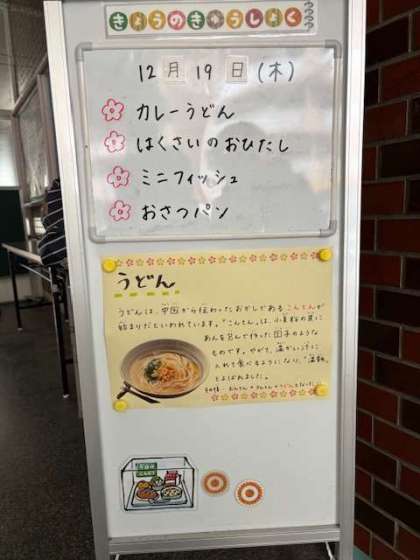 きょうのきゅうしょく
12月19日(木)
カレーうどん
はくさいのおひたし
ミニフィッシュ
おさつパン
うどん
うどんは、中国から伝わったおかしである こんとんが
始まりだといわれています。「こんとん」は、小麦粉の皮に
あんを包んで作った団子のような
ものです。やがて、温かい汁に
入れて食べるようになり、「温飩」
とよばれました。